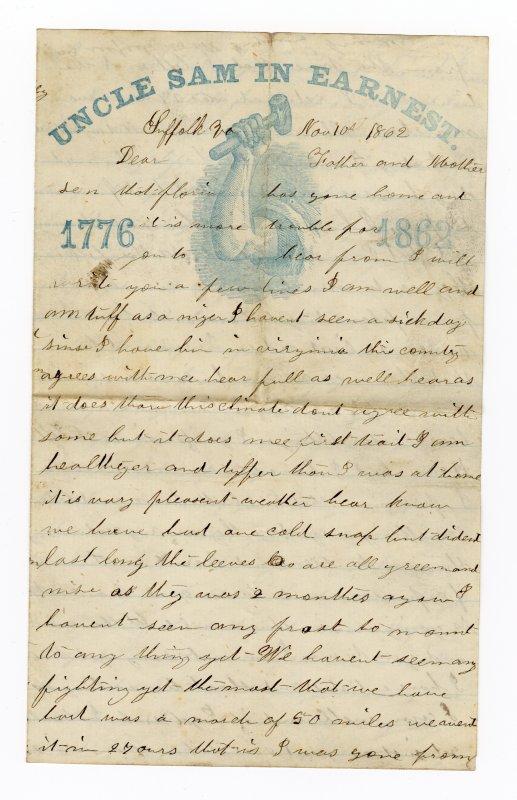 UNCLE SAM IN EARNEST.
Suffolk Va Nov 10th 1862
Dear Father and Mother
sen that has gone home and
1776 it is more trouble for 1862
you to hear from I will
write you a few lines I am well and
am tuff as a niger I havent seen a sick day
sinse I have bin in virginia this country
agrees with mee hear full as well hear as
it does thare this climate dont agree with
some but it does mee first trait I am
healthyer and tyffer than I was at home
it is vary pleasent weather hear know
we have had one cold snap but dident
last long the leeves are all green and
nise as they was 2 monthes agow I
havent seen any frost to mount
to any thing yet We havent seen any
fighting yet the most that we have
hart was a march of 50 miles we
it in 27 ours that is I was gone from